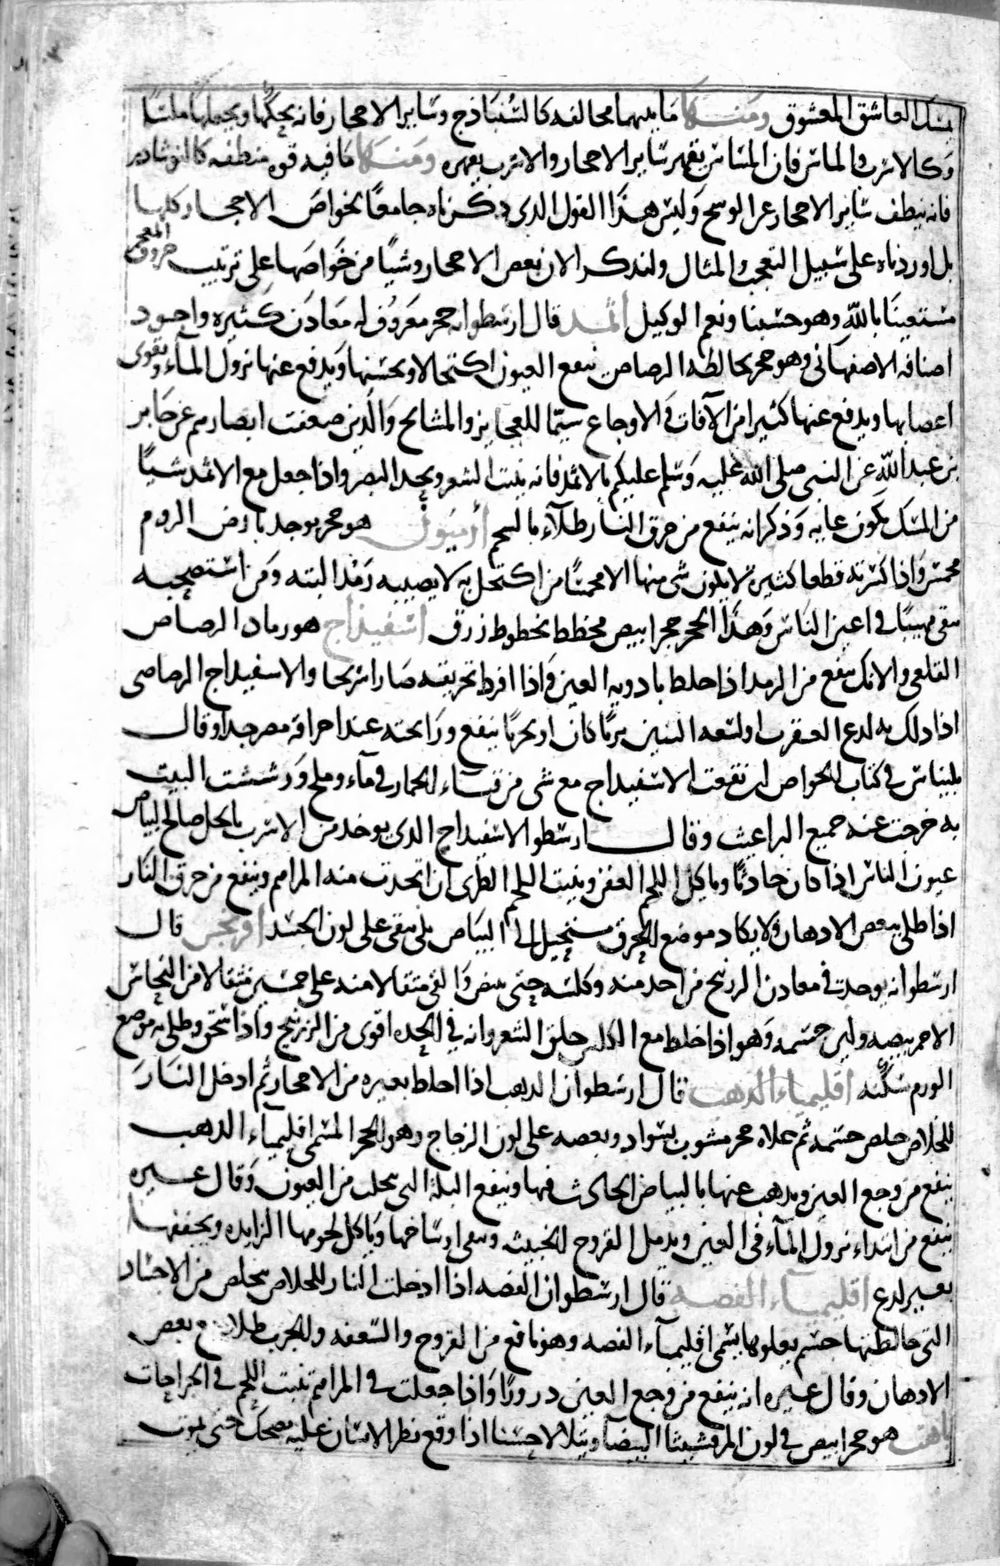 يمسك العاشق المعشوق ومنها ما بينهما مخالفة كالسنباذج وسائر الاحجار فانه يحكها ويجعلها ملسا
وكالاسرب والماس فان الماس يقهر سائر الاحجار والاسرب يقهره ومنها ما فيه قوة منظفه كالنوشادر
فانه ينظف سائر الاحجار عن الوسخ وليس هذا القول الذى ذكرناه جامعا لخواص الاحجار كلها
بل اوردناه على سبيل التعجب والمثال ولنذكر الان بعض الاحجار وشيا من خواصها على ترتيب حروف المعجم
مستعينا بالله وهو حسبنا ونعم الوكيل اثمد قال ارسطو انه حجر معروف له معادن كثيره واجود
اصنافه الاصفهانى وهو حجر يخالطه الرصاص ينفع العيون اكتحالا ويحسنها ويدفع عنها نزول الماء ويقوى
اعصابها ويدفع عنها كثيرا من الآفات والاوجاع سيما للعجايز والمشايخ والذين ضعفت ابصارهم عن جابر
بن عبد الله عن النبى صلى الله عليه وسلم عليكم بالاثمد فانه ينبت الشعر ويحد البصر واذا جعل مع الاثمد شيا
من المسك يكون غايه وذكر انه ينفع من حرق النار طلاء بالشحم هو حجر يوجد بارض الروم
مخمس واذا كسرته قطعا كثيرة لا يكون شى منها الا مخمسا من اكتحل به لا يصيبه رمد البته ومن استصحبه
يبقى مهيبا فى اعين الناس وهذا الحجر حجر ابيض مخطط بخطوط زرق اسفيداج هو رماد الرصاص
القلعى والانك ينفع من الرمد اذا خلط بادوية العين واذا افرط تحريقه صار اسرنجا والاسفيداج الرصاصى
اذا دلك به لدغ العقرب او لسعه التنين بريا كان او بحريا ينفع ورايحته عند احراقه مضر جدا وقال
بليناس فى كتاب الخواص ان نقعت الاسفيداج مع شى من قثاء الحمار فى ماء وملح ورششت البيت
به خرجت عنه جميع البراغيث وقال ارسطو الاسفيداج الذى يوخذ من الاسرب بالخل صالح لبياض
عيون الناس اذا كان حادثا وياكل اللحم العفن وينبت اللحم الطرى ان اتخذت منه المراهم وينفع من حرق النار
اذا طلى ببعض الادهان ولا يكاد موضع الحرق يستحيل الى البياض بل يبقى على لون الجسد قال
ارسطو انه يوجد فى معادن الزرنيخ من اخذ منه وكلسه حتى يبيض والقى مثقالا منه على خمسين مثقالا من النحاس
الاحمر يبيضه ولين جسمه وهو اذا خلط مع الكلس حلق الشعر وانه فى الحده اقوى من الزرنيخ واذا سحق وطلى به موضع
الورم سكنه اقليمياء الذهب قال ارسطو ان الذهب اذا اختلط بغيره من الاحجار ثم ادخل النار
للخلاص خلص جسمه ثم علاه حجر مشوب بسواد وبعضه على لون الزجاج وهو الحجر المسمى اقليمياء الذهب
ينفع من وجع العين ويذهب عنها بالبياض الحادث فيها وينفع البلة التى تحلب من العيون وقال غيره
ينفع من ابتداء نزول الماء فى العين ويدمل القروح الخبيثه وينقى اوساخها وياكل لحومها الزايده ويجففها
بغير لدع اقليمياء الفضه قال ارسطو ان الفضه اذا ادخلت النار للخلاص يخلص من الاجساد
التى خالطتها جسم يعلوها يسمى اقليمياء الفضه وهو نافع من القروح والسعفه وللجرب طلاء مع بعض
الادهان وقال غيره انه ينفع من وجع العين ذرورا واذا جعلت فى المراهم تنبت اللحم فى الجراحات
باهت هو حجر ابيض فى لون المرقشيثا البيضا ويتلالا حسنا اذا وقع نظر الانسان عليه يضحك حتى يموت